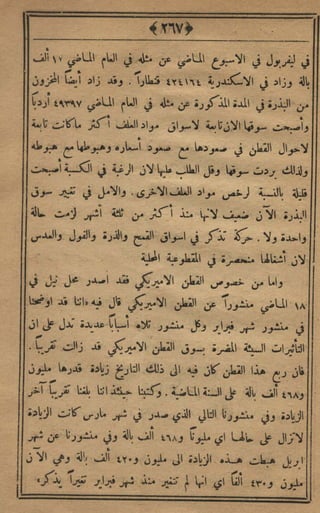 ﴿٢٦٧﴾
في ليفربول في الاسبوع الماضي عن مثله في العام الماضي ١٧ الف
بالة وزاد في الاسكندرية ٤٢٤١٦٤ قنطاراً . وقد زاد أيضاً المخزون
من البذرة في المدة المذكورة عن مثله في العام الماضي ٤٩٣٩٧ أردباً
وأصبحت سوقها الان تابعة لاسواق مواد العلف أكثر مما كانت تابعة
لاحوال القطن في صعودها مع صعود أسعاره وهبوطها مع هبوطه
ولذلك بردت سوقها وقل الطلب عليها لان الرغبة في الكسبة أصبحت
قليلة بالنسبة لرخص مواد العلف الاخرى . والامل في تغيير سوق
البذرة الآن ضعيف لانها منذ أكثر من ثلثة أشهر لزمت حالة
واحدة ولا . حركة تذكر في اسواق القمح والذرة والفول والعدس
لان أشغالها منحصرة في المقطوعية المحلية
واما من خصوص القطن الاميركي فقد اصدر محل نيل في
١٨ الماضي منشوراً عن القطن الاميركي قال فيه واننا قد اوضحنا
في منشور شهر فبراير وكل منشور تلاه أسباباً عديدة تدل على ان
التأثيرات السيئة المضرة بسوق القطن الاميركي قد زالت تقريباً .
فان ربع هذا القطن كان فيه الى ذلك التاريخ زيادة قدرها مليون
و٤٦٨ الف بالة على السنة الماضية . وكتبنا حينئذ اننا بلغنا تقريباً آخر
الزيادة وفي منشورنا التالي الذي صدر في شهر مارس كانت الزيادة
لا تزال على حالها اي مليوناً و٤٦٨ الف بالة وفي منشورنا عن شهر
ابريل هبطت هذه الزيادة الى مليون و٤٢٠ الف بالة وهي الآن
مليون و٤٣٠ الفاً اي انها لم تتغير منذ شهر فبراير تغيراً يذكر،